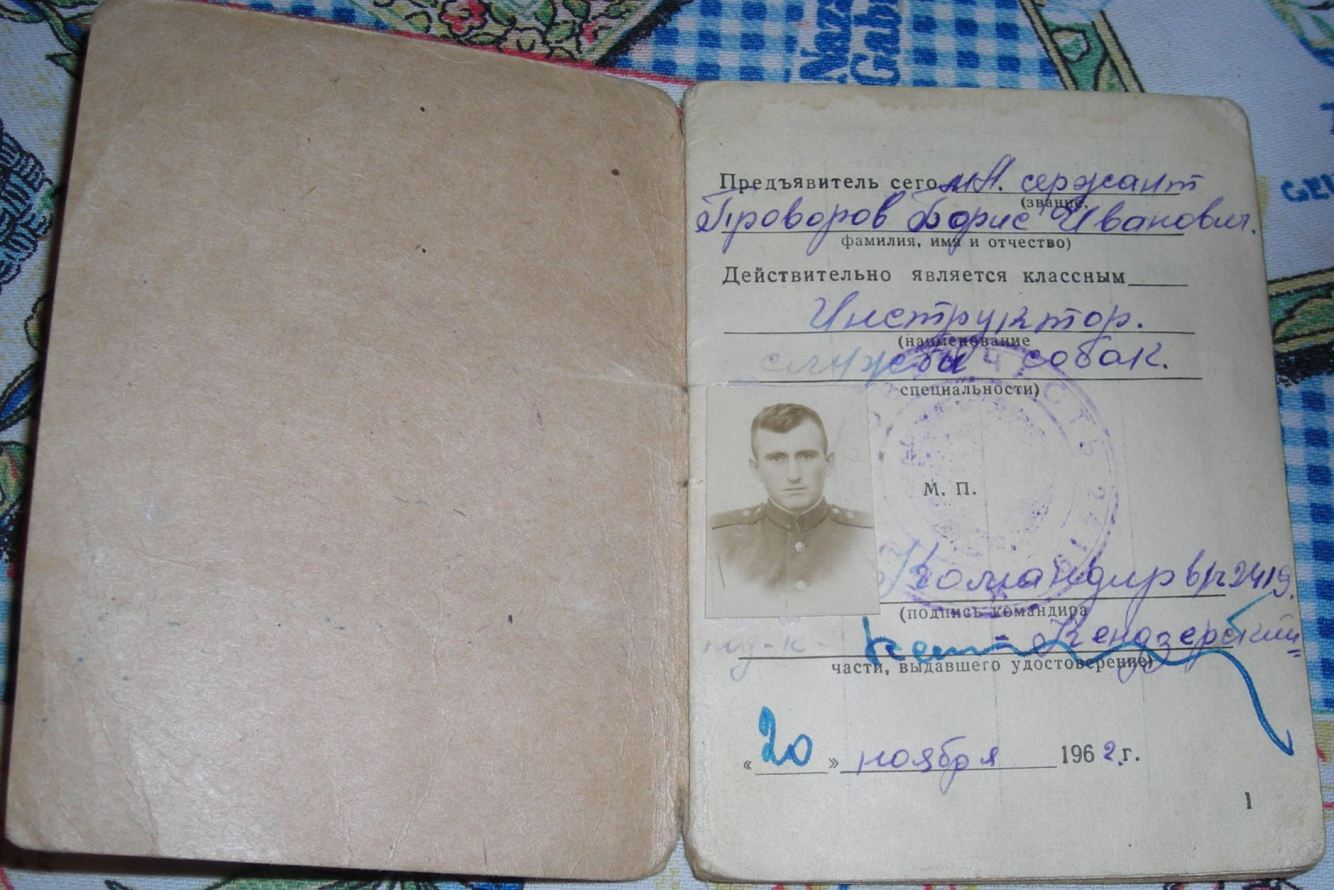 Предъявитель сего мл. сержант
(звание,
Проворов Борис Иванович.
фамилия, имя и отчество)
Действительно является классным
Инструктор.
(наименование
службы собак.
специальности)
М. П.
Командир в/ч 2419.
(подпись командира
под-к - Кендзерский
части, выдавшего удостоверение)
« 20 » ноября 1962 г.
1